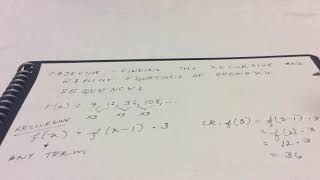 OBJECTIVE - FINDING THE RECURSIVE AND
EXPLICIT EQUATIONS OF GEOMETRIC
SEQUENCES
f(x) = 4, 12, 36, 108, ...
x3 x3 x3
RECURSIVE
f(x) = f(x-1) · 3
ANY TERM
CK. f(3) = f(3-1) · 3
= f(2) · 3
= 12 · 3
= 36